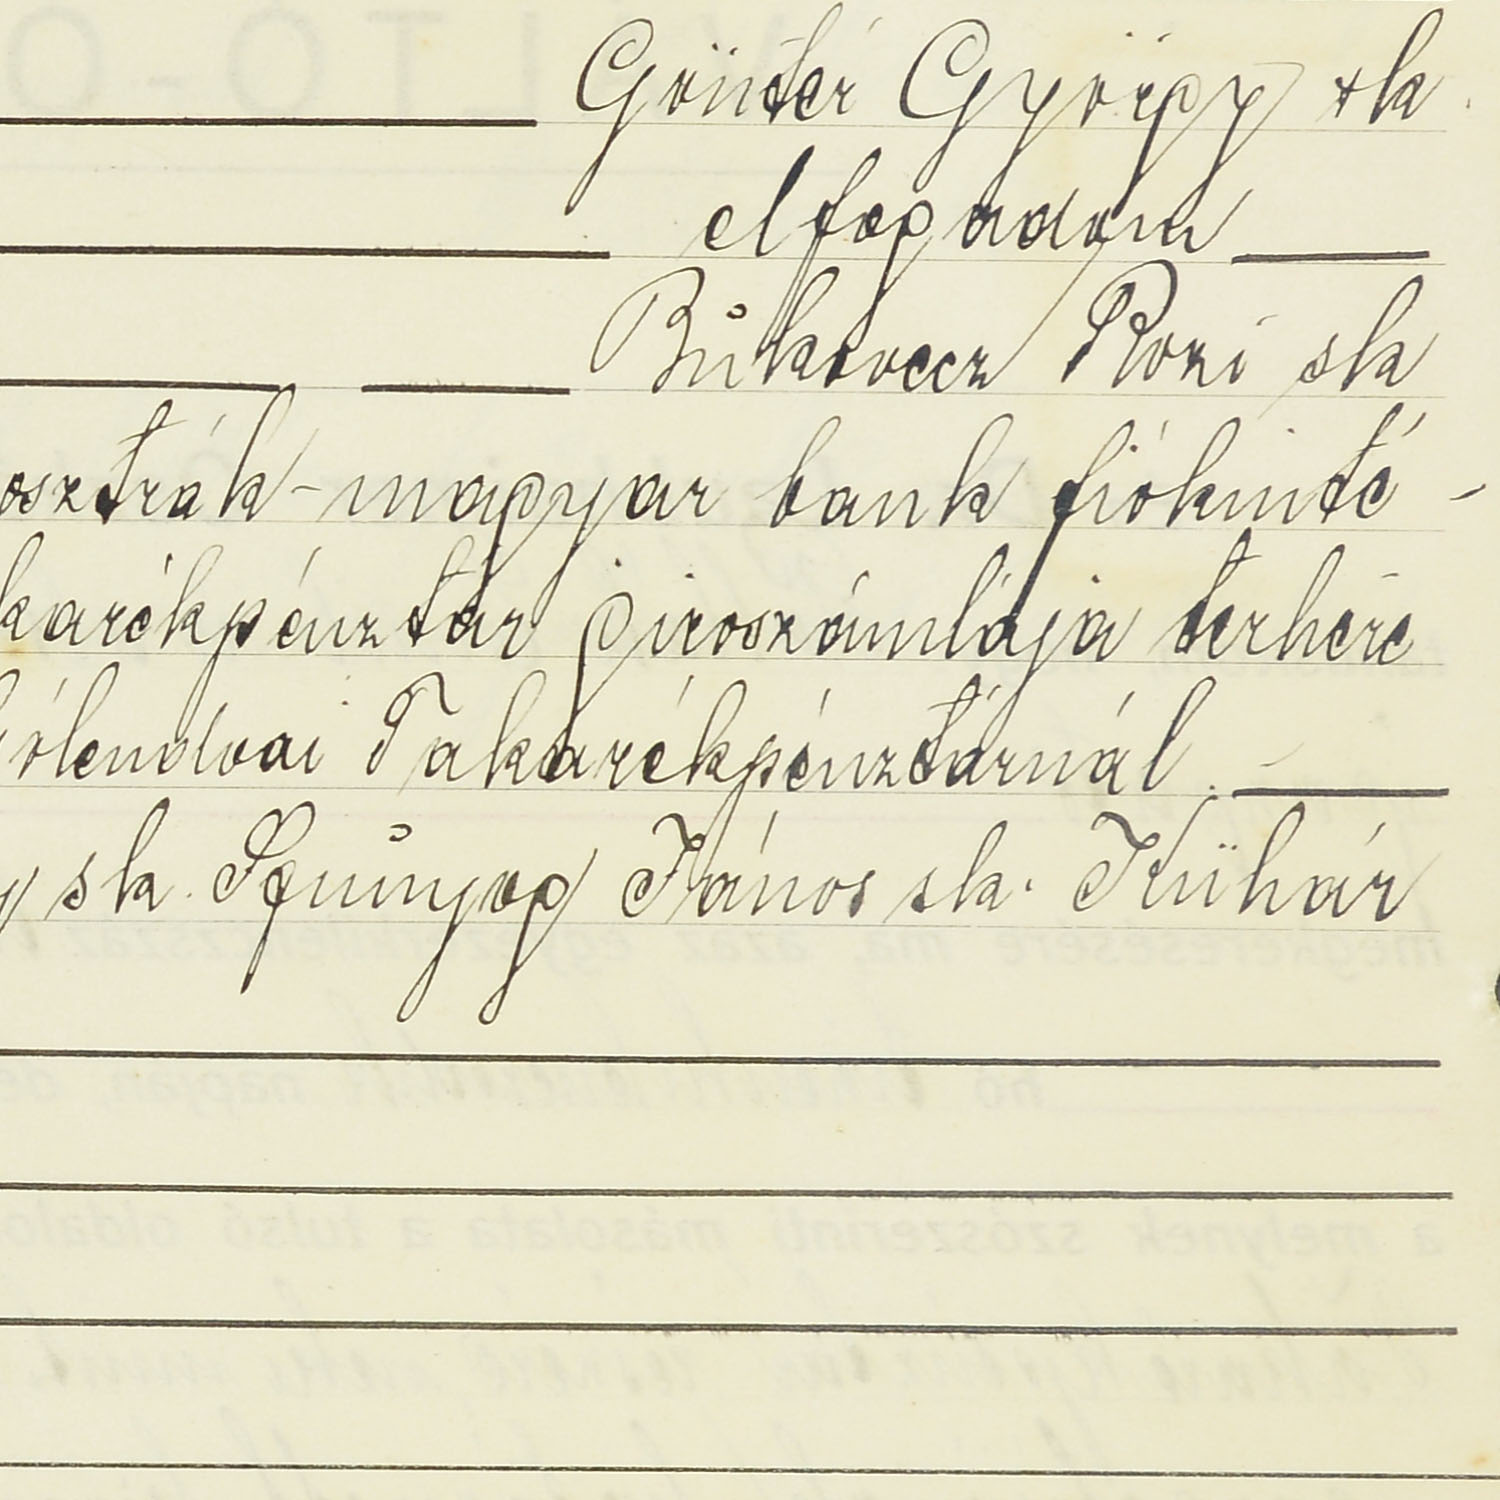 Göntér György sk.
elfogadom
Bukovecz Rozi sk
osztrák-magyar bank fiókinté-
karékpénztár girószámlája terhére
ólendvai Takarékpénztárnál.
sk. Spunyog János sk. Kühár